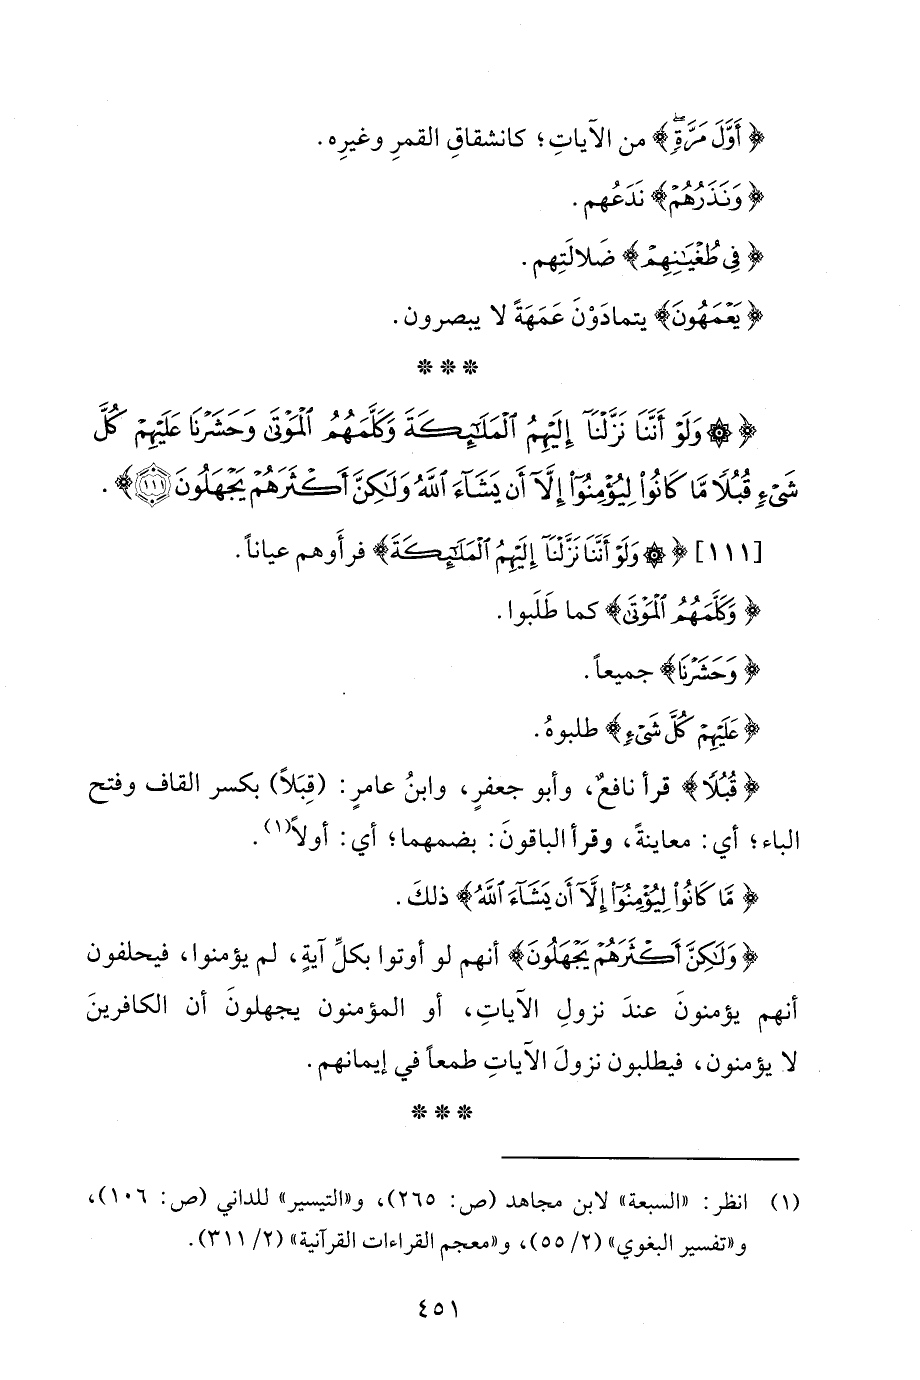 ﴿ أَوَّلَ مَرَّةٍ ﴾ من الآياتِ؛ كانشقاقِ القمرِ وغيرِه.
﴿ وَنَذَرُهُمْ ﴾ نَدَعُهم.
﴿ فِي طُغْيَٰنِهِمْ ﴾ ضَلالَتِهم.
﴿ يَعْمَهُونَ ﴾ يتمادَوْنَ عَمَهَةً لا يبصرون.
* * *
﴿ ۞ وَلَوْ أَنَّنَا نَزَّلْنَآ إِلَيْهِمُ ٱلْمَلَٰٓئِكَةَ وَكَلَّمَهُمُ ٱلْمَوْتَىٰ وَحَشَرْنَا عَلَيْهِمْ كُلَّ
شَىْءٍ قُبُلًا مَّا كَانُوا۟ لِيُؤْمِنُوٓا۟ إِلَّآ أَن يَشَآءَ ٱللَّهُ وَلَٰكِنَّ أَكْثَرَهُمْ يَجْهَلُونَ ۝١١١ ﴾.
[١١١] ﴿ ۞ وَلَوْ أَنَّنَا نَزَّلْنَآ إِلَيْهِمُ ٱلْمَلَٰٓئِكَةَ ﴾ فرأَوهم عياناً.
﴿ وَكَلَّمَهُمُ ٱلْمَوْتَىٰ ﴾ كما طَلَبوا.
﴿ وَحَشَرْنَا ﴾ جميعاً.
﴿ عَلَيْهِمْ كُلَّ شَىْءٍ ﴾ طلبوهُ.
﴿ قُبُلًا ﴾ قرأ نافعٌ، وأبو جعفرٍ، وابنُ عامرٍ: (قِبَلاً) بكسر القاف وفتح
الباء؛ أي: معاينةً، وقرأ الباقونَ: بضمهما؛ أي: أولاً(١).
﴿ مَّا كَانُوا۟ لِيُؤْمِنُوٓا۟ إِلَّآ أَن يَشَآءَ ٱللَّهُ ﴾ ذلكَ.
﴿ وَلَٰكِنَّ أَكْثَرَهُمْ يَجْهَلُونَ ﴾ أنهم لو أوتوا بكلِّ آيةٍ، لم يؤمنوا، فيحلفون
أنهم يؤمنونَ عندَ نزولِ الآياتِ، أو المؤمنون يجهلونَ أن الكافرينَ
لا يؤمنون، فيطلبون نزولَ الآياتِ طمعاً في إيمانهم.
* * *
(١) انظر: «السبعة» لابن مجاهد (ص: ٢٦٥)، و«التيسير» للداني (ص: ١٠٦)،
و«تفسير البغوي» (٢/ ٥٥)، و«معجم القراءات القرآنية» (٢/ ٣١١).
٤٥١